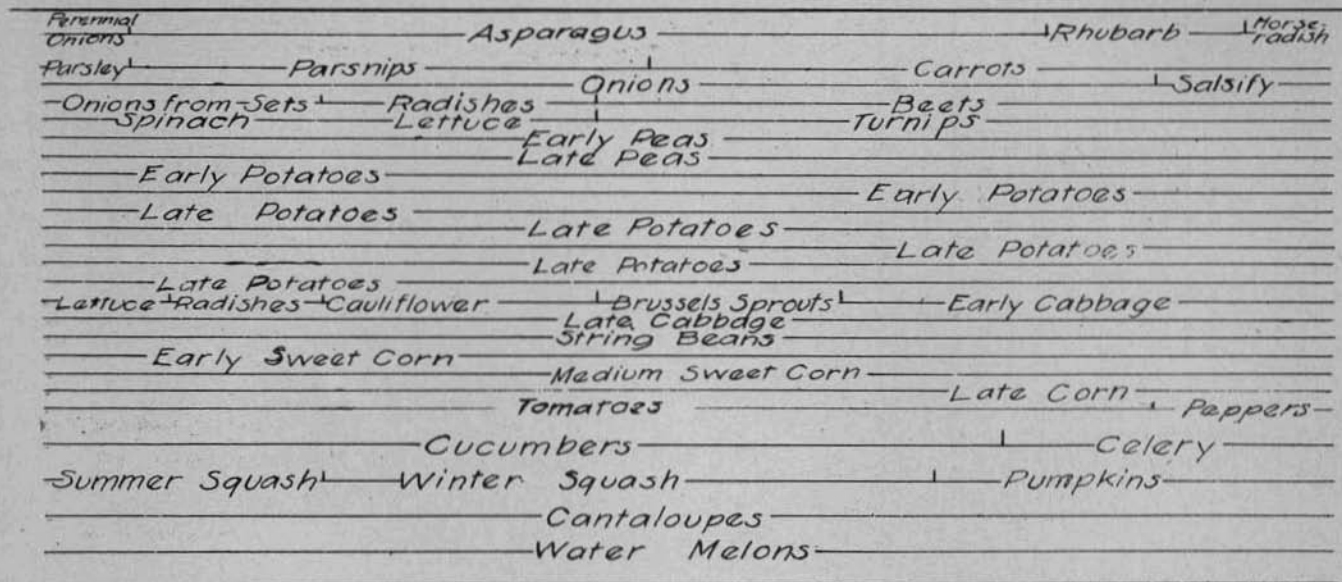 Perennial Onions Asparagus Rhubarb Horse-radish
Parsley Parsnips Carrots
Onions Salsify
Onions from Sets Radishes Beets
Spinach Lettuce Turnips
Early Peas
Late Peas
Early Potatoes
Early Potatoes
Late Potatoes
Late Potatoes
Late Potatoes
Late Potatoes
Late Potatoes
Lettuce Radishes Cauliflower Brussels Sprouts Early Cabbage
Late Cabbage
String Beans
Early Sweet Corn
Medium Sweet Corn
Late Corn
Tomatoes Peppers
Cucumbers Celery
Summer Squash Winter Squash Pumpkins
Cantaloupes
Water Melons